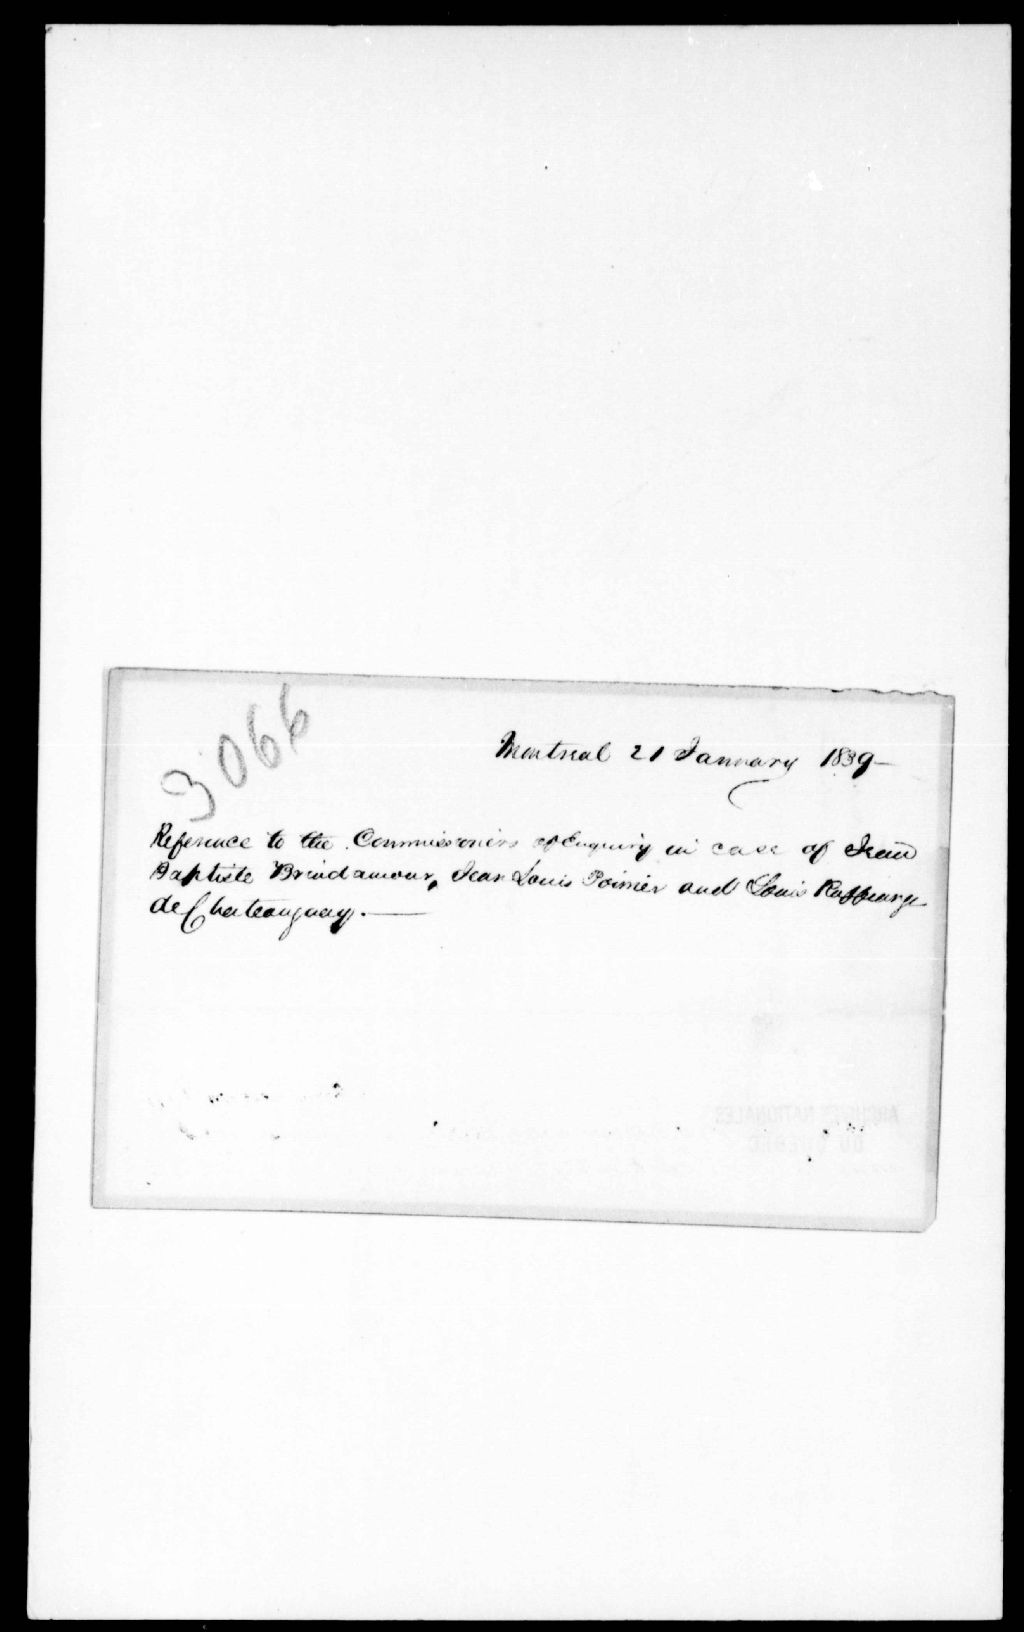 3066
Montreal 21 January 1839—
Reference to the Commissioners of Enquiry in case of Jean
Baptiste Brindamour, Jean Louis Poirrier and Louis
de Chateauguay.—
ARCHIVES NATIONALES
DU QUÉBEC